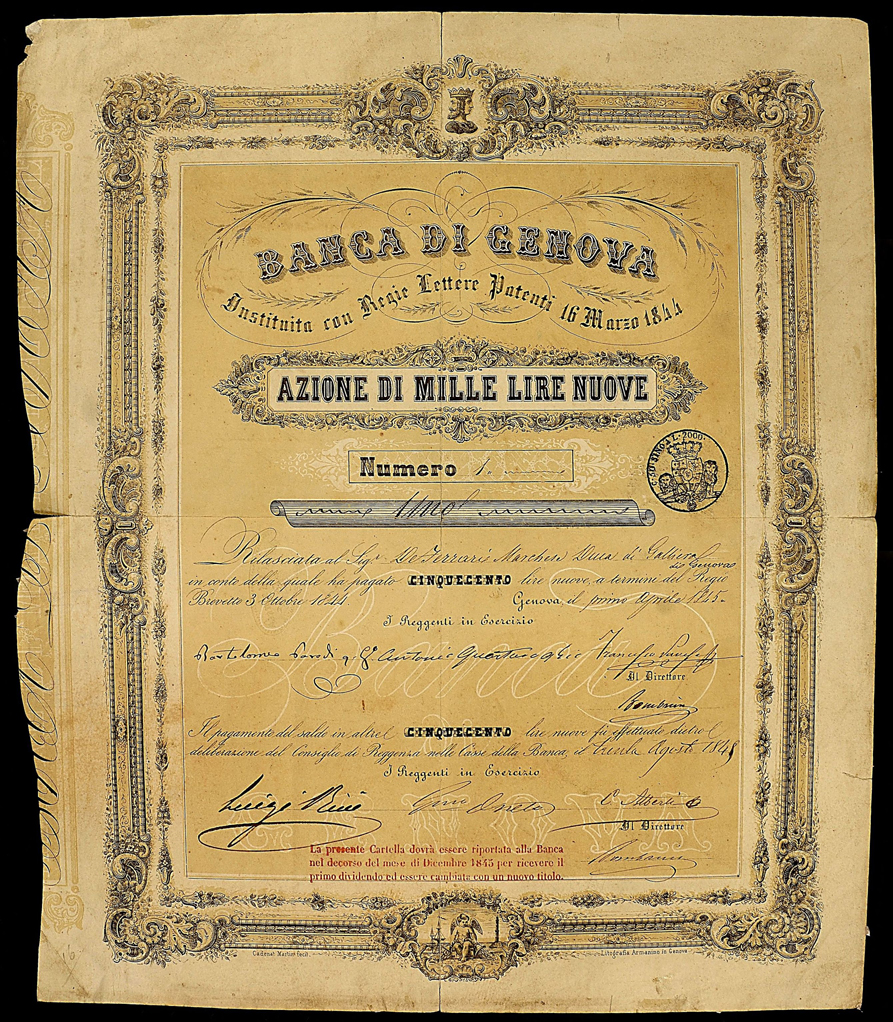 BANCA DI GENOVA
Instituita con Regie Lettere Patenti 16 Marzo 1844
AZIONE DI MILLE LIRE NUOVE
Numero 1.
Uno
Rilasciata al Sigr. De Ferrari Marchese Duca di Galliera di Genova
in conto della quale ha pagato CINQUECENTO lire nuove, a termini del Regio
Brevetto 3 Ottobre 1844. Genova, il primo Aprile 1845.
I Reggenti in Esercizio
Bartolomeo Parodi q. Antonio Quartara Francesco
Il Direttore
Bombrini
Il pagamento del saldo in altre CINQUECENTO lire nuove fu effettuato dietro
deliberazione del Consiglio di Reggenza nelle Casse della Banca, il trenta Agosto 1845
I Reggenti in Esercizio
Luigi C. Alberti
Il Direttore
Bombrini
La presente Cartella dovrà essere riportata alla Banca
nel decorso del mese di Dicembre 1845 per ricevere il
primo dividendo ed essere cambiata con un nuovo titolo.
Litografia Armanino in Genova